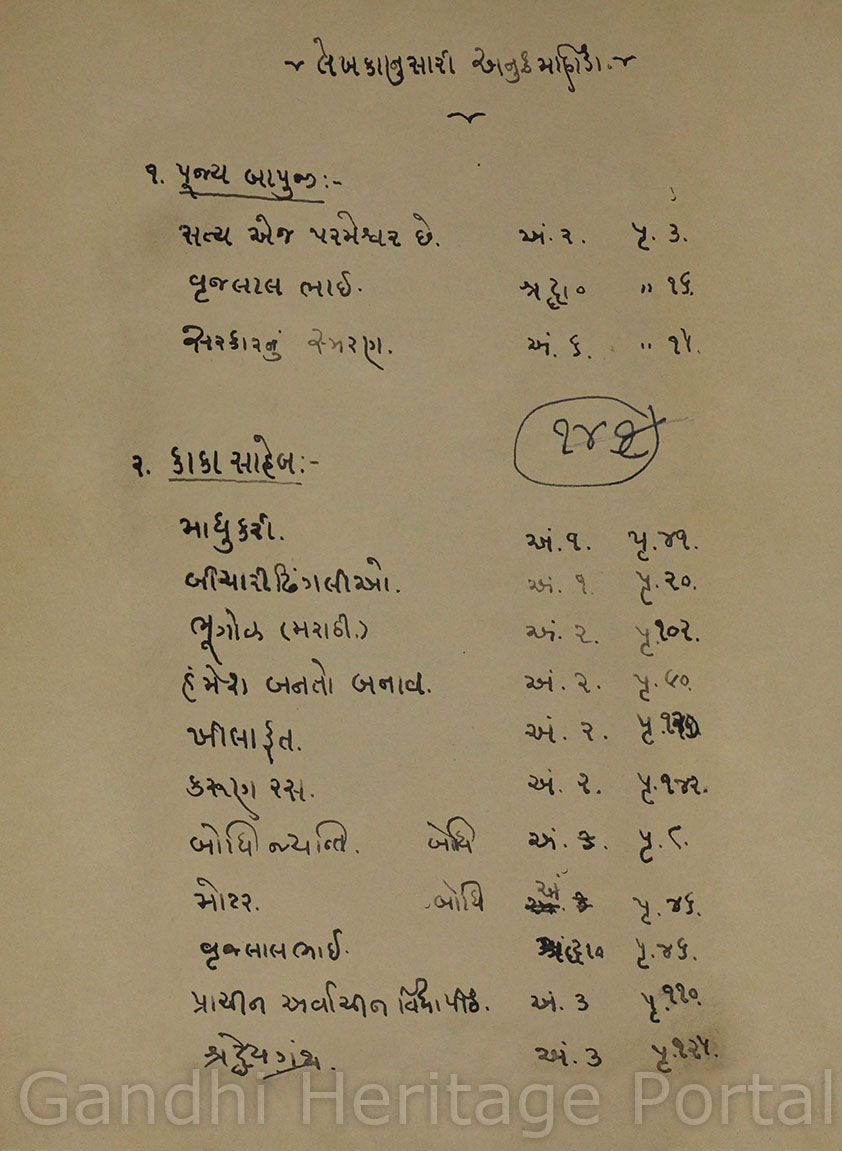 લેખકાનુસારી અનુક્રમણિકા.
૧. પૂજ્ય બાપુજી:-
સત્ય એજ પરમેશ્વર છે. અં. ૨. પૃ. ૩.
વૃજલાલ ભાઈ. શ્રદ્ધા૦ " ૧૬.
સરકારનું સ્મરણ. અં. ૬. " ૧૫.
૨. કાકા સાહેબ:-
માધુકરી. અં. ૧. પૃ. ૪૧.
બીચારી ઢિંગલીઓ. અં. ૧ પૃ. ૨૦.
ભૂગોળ (મરાઠી.) અં. ૨. પૃ. ૧૦૨.
હંમેશ બનતો બનાવ. અં. ૨. પૃ. ૬૦.
ખીલાફત. અં. ૨. પૃ.
કરૂણ રસ. અં. ૨. પૃ. ૧૪૨.
બોધિ જ્યન્તિ. બોધિ અં. પૃ. ૮.
મોટર. બોધિ અં. પૃ. ૪૬.
વૃજલાલ ભાઈ. શ્રદ્ધા૦ પૃ. ૪૬.
પ્રાચીન અર્વાચીન વિદ્યાપીઠ. અં. ૩ પૃ. ૧૧૦.
શ્રદ્ધેય ગ્રંથ. અં. ૩ પૃ. ૧૨૫.
Gandhi Heritage Portal